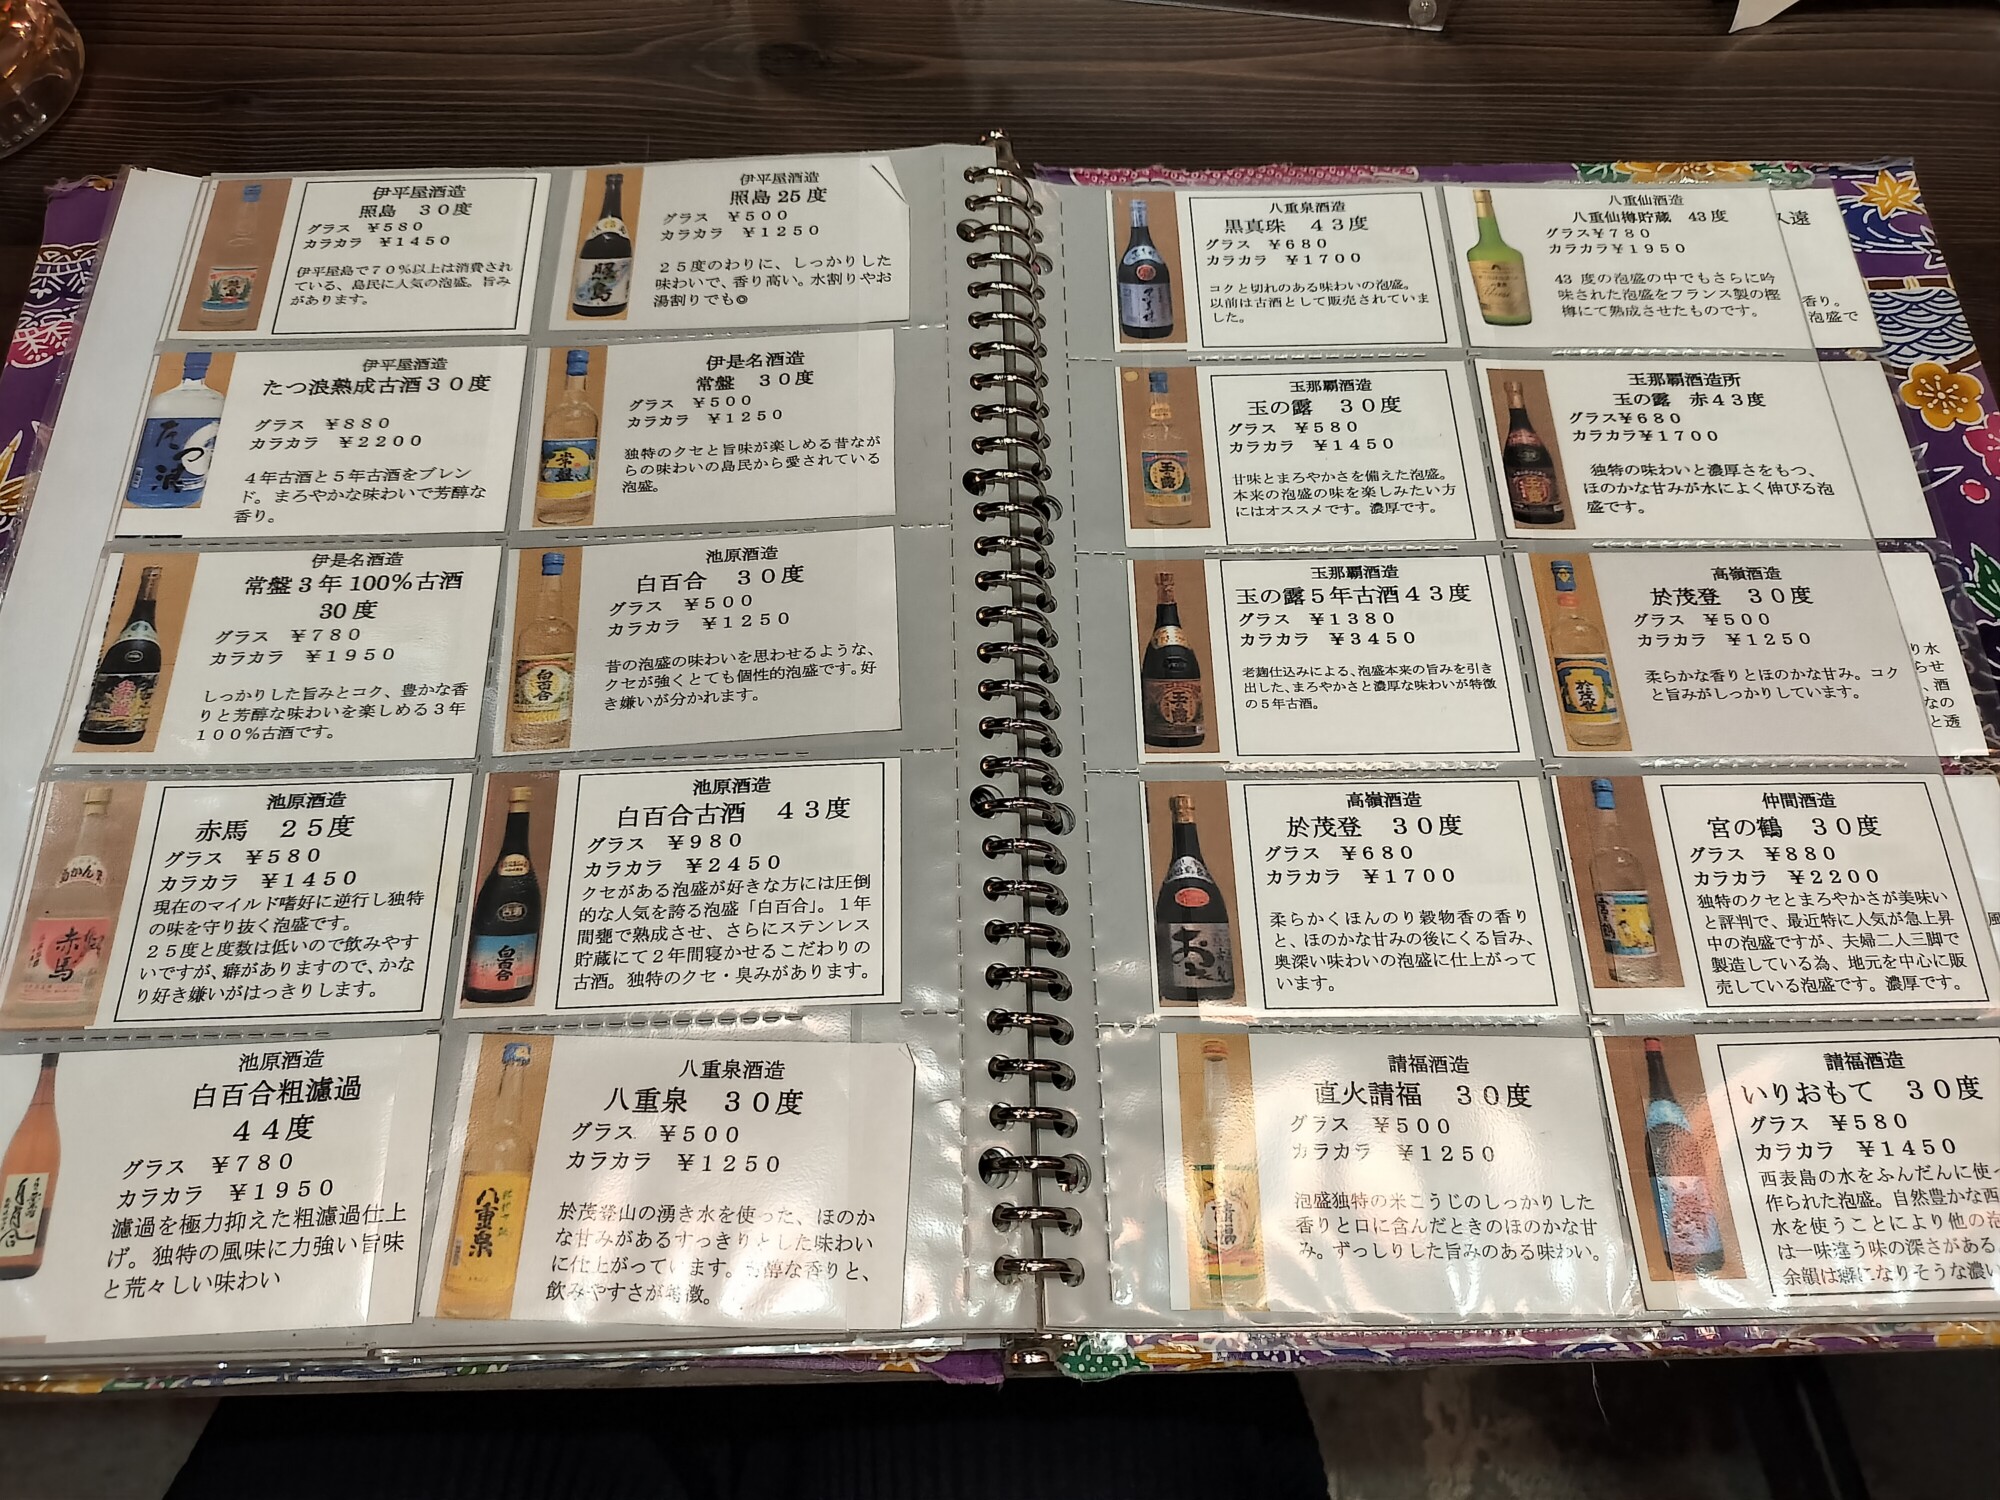 伊平屋酒造
照島 30度
グラス ¥580
カラカラ ¥1450
伊平屋島で70%以上は消費され
ている、島民に人気の泡盛。旨み
があります。
伊平屋酒造
照島25度
グラス ¥500
カラカラ ¥1250
25度のわりに、しっかりした
味わいで、香り高い。水割りやお
湯割りでも◎
伊平屋酒造
たつ浪熟成古酒30度
グラス ¥880
カラカラ ¥2200
4年古酒と5年古酒をブレン
ド。まろやかな味わいで芳醇な
香り。
伊是名酒造
常盤 30度
グラス ¥500
カラカラ ¥1250
独特のクセと旨味が楽しめる昔なが
らの味わいの島民から愛されている
泡盛。
伊是名酒造
常盤3年100%古酒
30度
グラス ¥780
カラカラ ¥1950
しっかりした旨みとコク、豊かな香
りと芳醇な味わいを楽しめる3年
100%古酒です。
池原酒造
白百合 30度
グラス ¥500
カラカラ ¥1250
昔の泡盛の味わいを思わせるような、
クセが強くとても個性的泡盛です。好
き嫌いが分かれます。
池原酒造
赤馬 25度
グラス ¥580
カラカラ ¥1450
現在のマイルド嗜好に逆行し独特
の味を守り抜く泡盛です。
25度と度数は低いので飲みやす
いですが、癖がありますので、かな
り好き嫌いがはっきりします。
池原酒造
白百合古酒 43度
グラス ¥980
カラカラ ¥2450
クセがある泡盛が好きな方には圧倒
的な人気を誇る泡盛「白百合」。1年
間甕で熟成させ、さらにステンレス
貯蔵にて2年間寝かせるこだわりの
古酒。独特のクセ・臭みがあります。
池原酒造
白百合粗濾過
44度
グラス ¥780
カラカラ ¥1950
濾過を極力抑えた粗濾過仕上
げ。独特の風味に力強い旨味
と荒々しい味わい
八重泉酒造
八重泉 30度
グラス ¥500
カラカラ ¥1250
於茂登山の湧き水を使った、ほのか
な甘みがあるすっきりとした味わい
に仕上がっています。醇な香りと、
飲みやすさが特徴。
八重泉酒造
黒真珠 43度
グラス ¥680
カラカラ ¥1700
コクと切れのある味わいの泡盛。
以前は古酒として販売されていま
した。
八重仙酒造
八重仙樽貯蔵 43度
グラス¥780
カラカラ¥1950
43度の泡盛の中でもさらに吟
味された泡盛をフランス製の樫
樽にて熟成させたものです。
玉那覇酒造
玉の露 30度
グラス ¥580
カラカラ ¥1450
甘味とまろやかさを備えた泡盛。
本来の泡盛の味を楽しみたい方
にはオススメです。濃厚です。
玉那覇酒造所
玉の露 赤43度
グラス¥680
カラカラ¥1700
独特の味わいと濃厚さをもつ、
ほのかな甘みが水によく伸びる泡
盛です。
玉那覇酒造
玉の露5年古酒43度
グラス ¥1380
カラカラ ¥3450
老麹仕込みによる、泡盛本来の旨みを引き
出した、まろやかさと濃厚な味わいが特徴
の5年古酒。
高嶺酒造
於茂登 30度
グラス ¥500
カラカラ ¥1250
柔らかな香りとほのかな甘み。コク
と旨みがしっかりしています。
高嶺酒造
於茂登 30度
グラス ¥680
カラカラ ¥1700
柔らかくほんのり穀物香の香り
と、ほのかな甘みの後にくる旨み、
奥深い味わいの泡盛に仕上がって
います。
仲間酒造
宮の鶴 30度
グラス ¥880
カラカラ ¥2200
独特のクセとまろやかさが美味い
と評判で、最近特に人気が急上昇
中の泡盛ですが、夫婦二人三脚で
製造している為、地元を中心に販
売している泡盛です。濃厚です。
請福酒造
直火請福 30度
グラス ¥500
カラカラ ¥1250
泡盛独特の米こうじのしっかりした
香りと口に含んだときのほのかな甘
み。ずっしりした旨みのある味わい。
請福酒造
いりおもて 30度
グラス ¥580
カラカラ ¥1450
西表島の水をふんだんに使っ
作られた泡盛。自然豊かな西
水を使うことにより他の泡
は一味違う味の深さがある。
余韻は癖になりそうな濃い